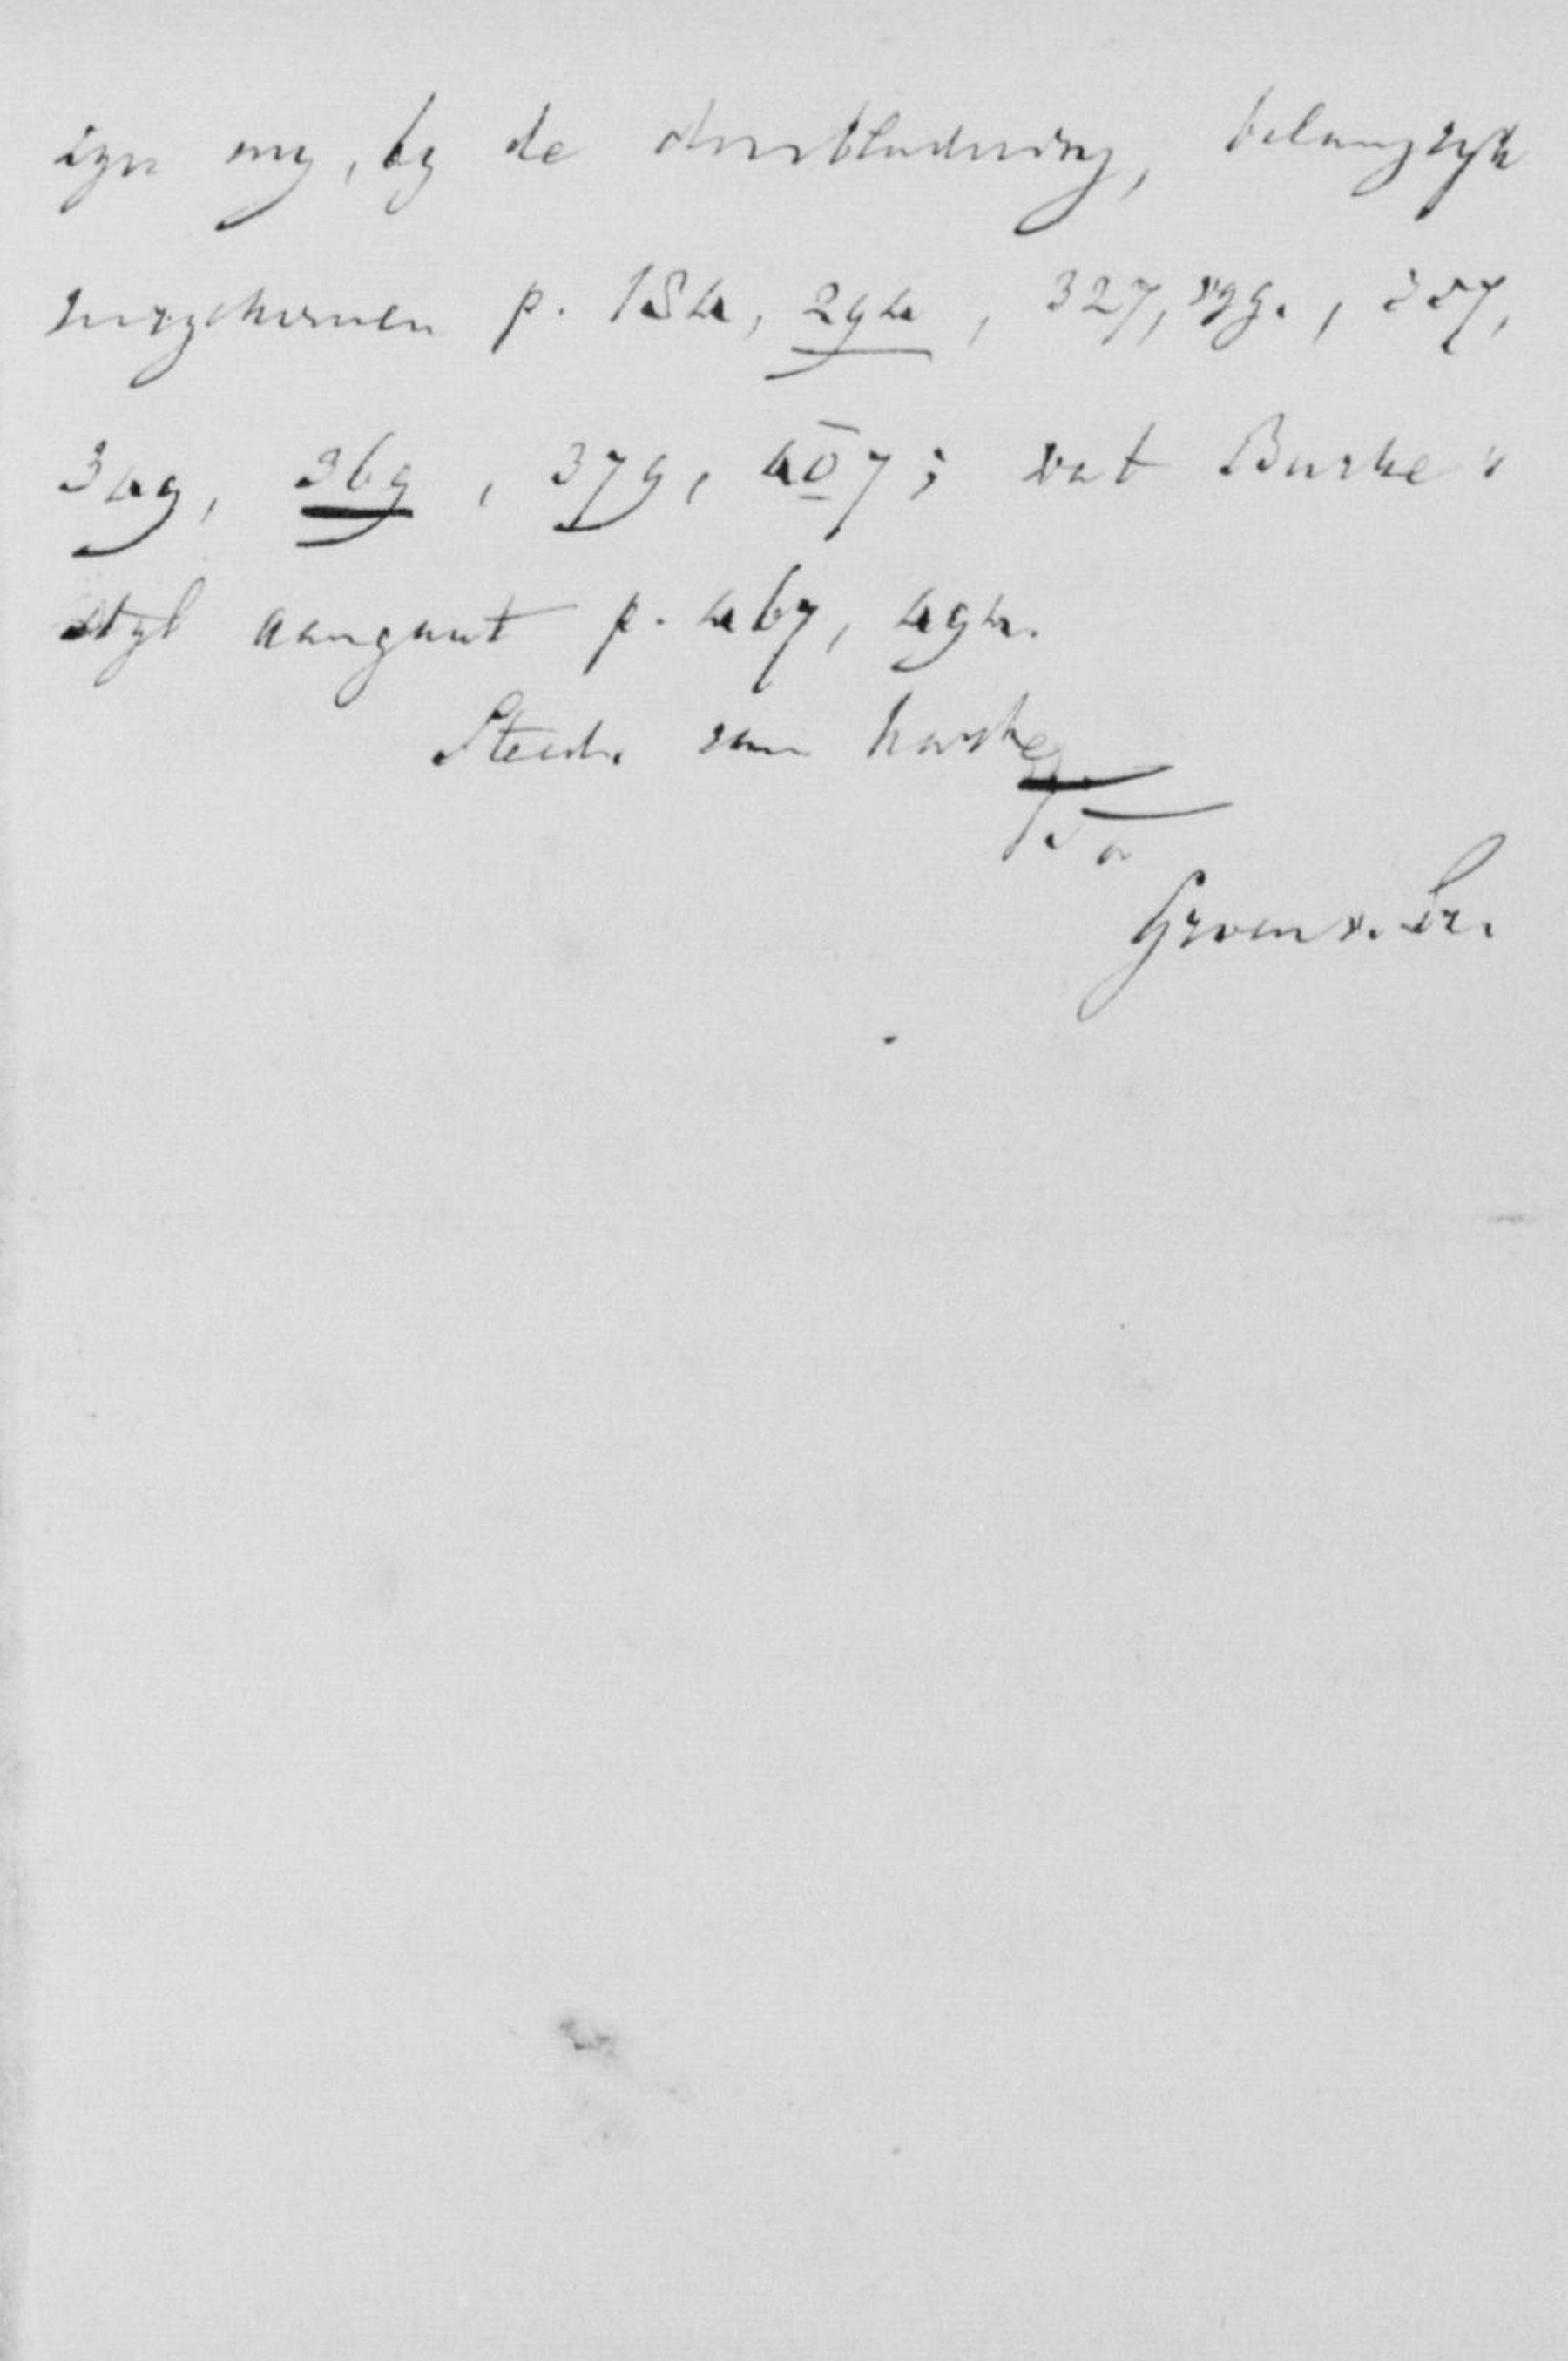 zyn my, by de doorbladering, belangryk
voorgekomen p. 184, 294, 327, vgg., 357,
349, 369, 379, 407; wat Burke's
styl aangaat p. 467, 494.
Steeds van harte
Groen v. Pr.